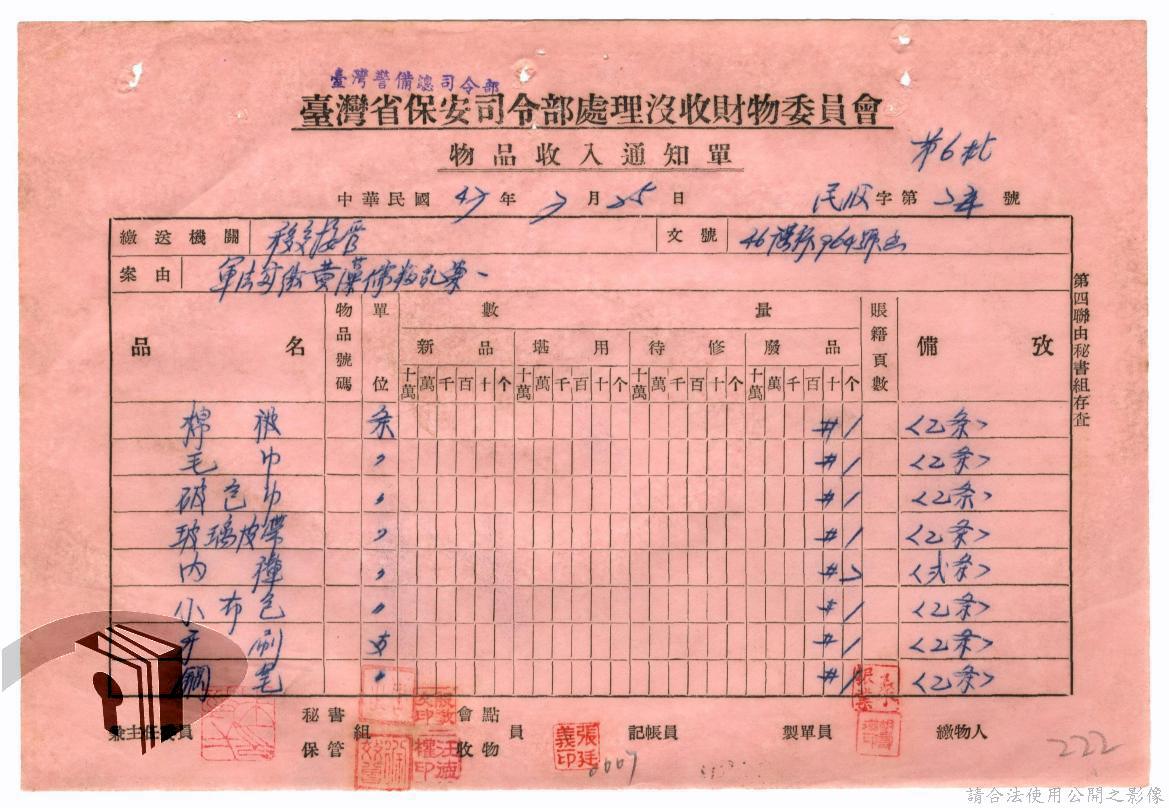 臺灣警備總司令部
臺灣省保安司令部處理沒收財物委員會
物品收入通知單
第6批
中華民國 47年 7月 25日
民收字第 號
繳送機關 移交接管 文號 46 964號
案由 軍法 叛亂案
第四聯由秘書組存查
品名 物品號碼 單位 數量 賬籍頁數 備攷
新品 堪用 待修 廢品
十萬 萬 千 百 十 个 十萬 萬 千 百 十 个 十萬 萬 千 百 十 个 十萬 萬 千 百 十 个
棉被 条 # 1 <乙条>
毛巾 〃 # 1 <乙条>
破包巾 〃 # 1 <乙条>
玻璃皮帶 〃 # 1 <乙条>
内褲 〃 # 2 <弍条>
小布包 〃 # 1 <乙条>
牙刷 支 # 1 <乙条>
鋼笔 〃 # 1 <乙条>
兼主任委員 秘書保管組 會點收物員 記帳員 製單員 繳物人
張廷義印
0007
222
請合法使用公開之影像